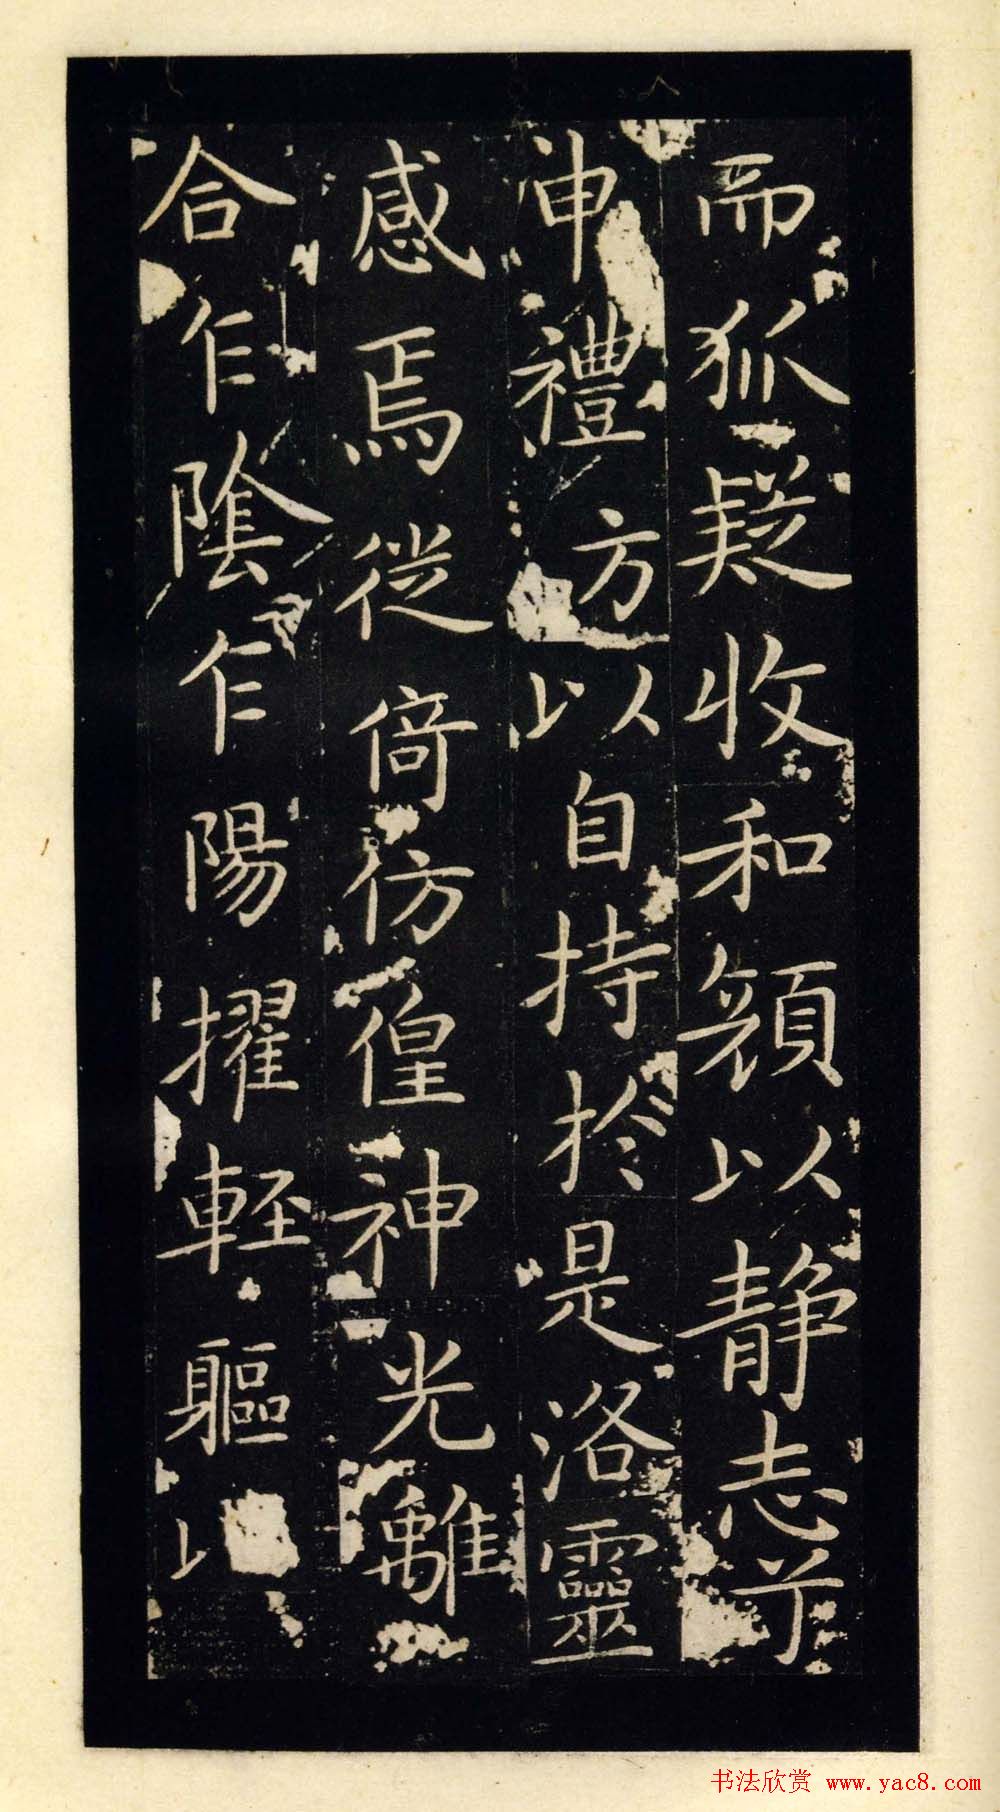 而狐疑收和顏以静志兮
申禮方以自持於是洛靈
感焉徙倚仿偟神光離
合乍陰乍陽擢輕軀以
书法欣赏 www.yac8.com